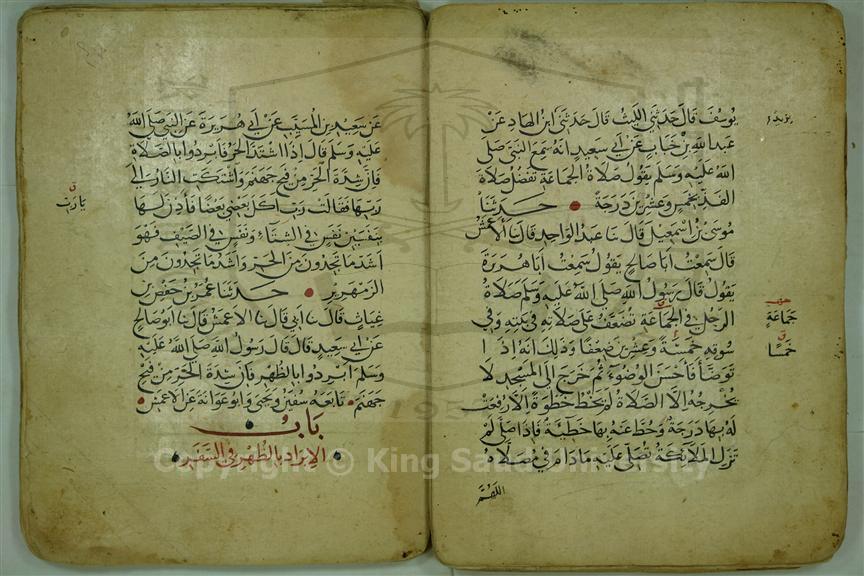 يوسف قال حدثني الليث قال حدثني ابن الهاد عن
عبد الله بن خباب عن أبي سعيد انه سمع النبي صلى
الله عليه وسلم يقول صلاة الجماعة تفضل صلاة
الفذ بخمس وعشرين درجة حدثنا
موسى بن اسمعيل قال نا عبد الواحد قال نا الأعمش
قال سمعت أبا صالح يقول سمعت أبا هريرة
يقول قال رسول الله صلى الله عليه وسلم صلاة
الرجل في الجماعة تضعف على صلاته في بيته وفي
سوقه خمسة وعشرين ضعفا وذلك انه إذا
توضأ فأحسن الوضوء ثم خرج إلى المسجد لا
يخرجه إلا الصلاة لم يخط خطوة إلا رفعت
له بها درجة وحط عنه بها خطيئة فإذا صلى لم
تزل الملائكة تصلي عليه ما دام في مصلاه
اللهم
جماعة
خمسا
عن سعيد بن المسيب عن أبي هريرة عن النبي صلى الله
عليه وسلم قال إذا اشتد الحر فأبردوا بالصلاة
فإن شدة الحر من فيح جهنم واشتكت النار إلى
ربها فقالت رب أكل بعضي بعضا فأذن لها
بنفسين نفس في الشتاء ونفس في الصيف فهو
أشد ما تجدون من الحر وأشد ما تجدون من
الزمهرير حدثنا عمر بن حفص بن
غياث قال نا أبي قال نا الأعمش قال نا أبو صالح
عن أبي سعيد قال قال رسول الله صلى الله عليه
وسلم أبردوا بالظهر فإن شدة الحر من فيح
جهنم تابعه سفين ويحيى وأبو عوانة عن الأعمش
باب
الإبراد بالظهر في السفر
يا رب
Copyright © King Saud University